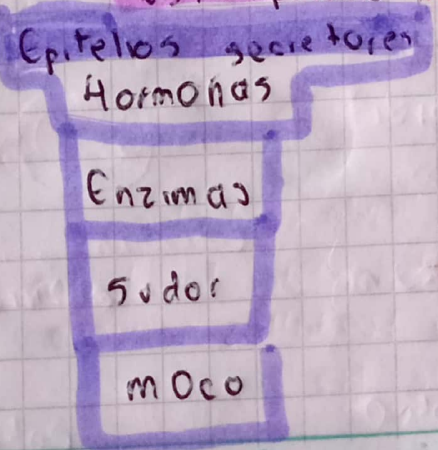 Epitelios secretores
Hormonas
Enzimas
Sudor
moco